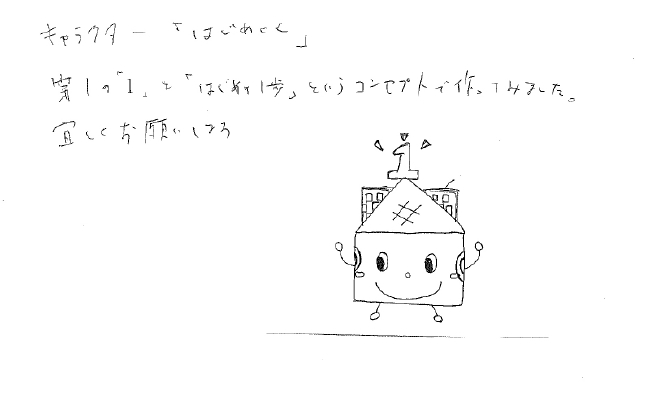 キャラクター 「はじめくん」
第1の「1」と「はじめの1歩」というコンセプトで作ってみました。
宜しくお願いします
1